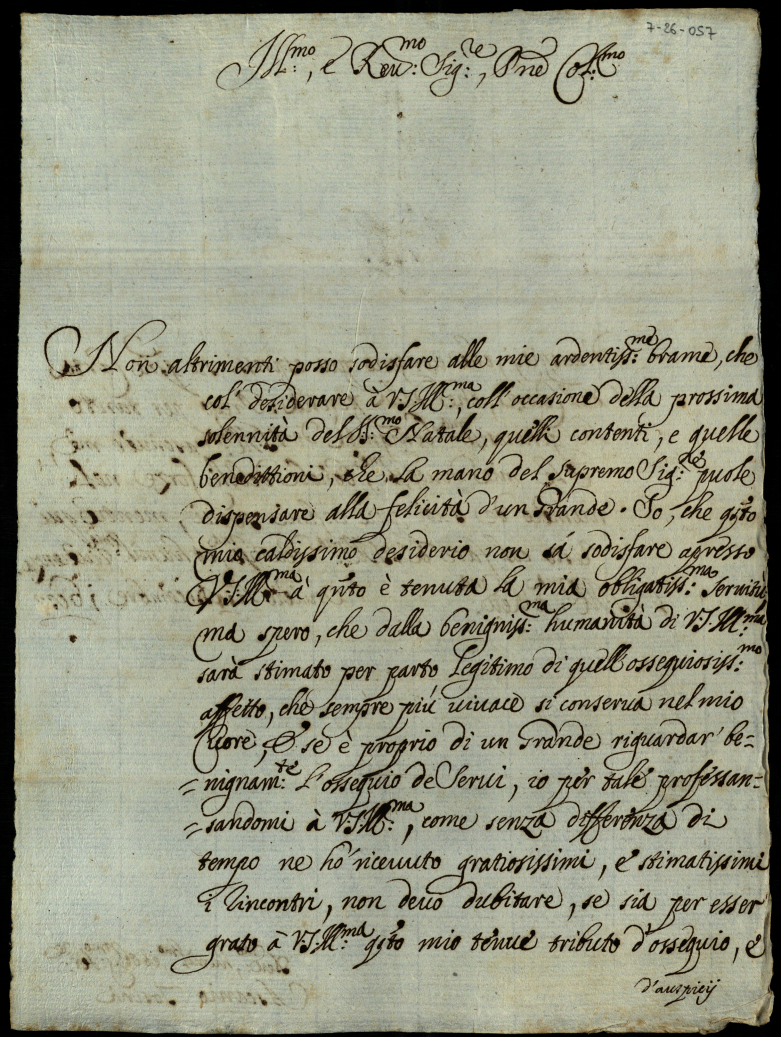 7-26-057
Ill:mo, e Reu:mo Sig:re, Pne Col:mo
Non altrimenti posso sodisfare alle mie ardentiss:me brame, che
col' desiderare à V.S.Ill:ma, coll'occasione della prossima
solennità del S:mo Natale, quelli contenti, e quelle
benedittioni, che la mano del supremo Sig:re puole
dispensare alla felicità d'un Grande. Io, che qsto
mio caldissimo desiderio non sá sodisfare apresso
V.S.Ill:ma à qnto è tenuta la mia obligatiss:ma seruitu
ma spero, che dalla benigniss:ma humanità di V.S.Ill:ma
sarà stimato per parto legitimo di quell'ossequiosiss:mo
affetto, che sempre piú uiuace si conserua nel mio
Cuore, E se è proprio di un Grande riguardar' be=
=nignam:te l'ossequio de Serui, io per tale professan=
=sandomi à V.S.Ill:ma, come senza differenza di
tempo ne hó riceuuto gratiosissimi, e stimatissimi
i rincontri, non deuo dubitare, se sia per esser
grato à V.S.Ill:ma qsto mio tenue tributo d'ossequio, e
d'auspicij